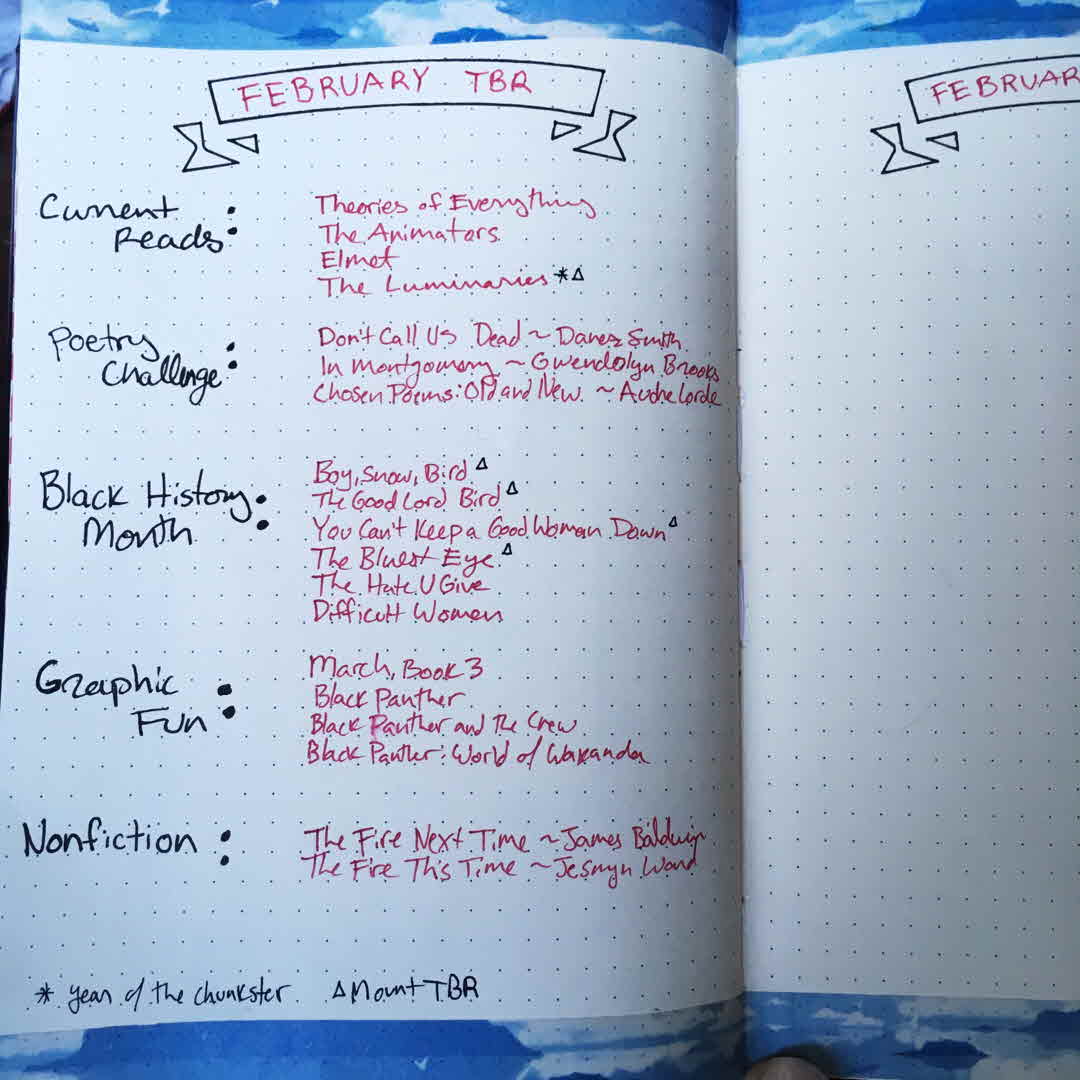 FEBRUARY TBR
Current Reads:
Theories of Everything
The Animators
Elmet
The Luminaries *Δ
Poetry Challenge:
Don't Call Us Dead ~ Danez Smith
In Montgomery ~ Gwendolyn Brooks
Chosen Poems: Old and New ~ Audre Lorde
Black History Month:
Boy, Snow, Bird Δ
The Good Lord Bird Δ
You Can't Keep a Good Woman Down Δ
The Bluest Eye Δ
The Hate U Give
Difficult Women
Graphic Fun:
March, Book 3
Black Panther
Black Panther and the Crew
Black Panther: World of Wakanda
Nonfiction:
The Fire Next Time ~ James Baldwin
The Fire This Time ~ Jesmyn Ward
* year of the chunkster Δ Mount TBR
FEBRUAR